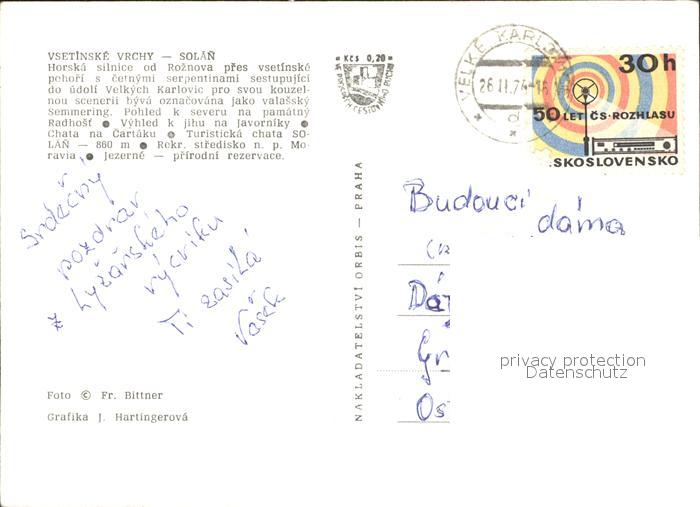 VSETÍNSKÉ VRCHY — SOLÁŇ
Horská silnice od Rožnova přes vsetínské
pohoří s četnými serpentinami sestupující
do údolí Velkých Karlovic pro svou kouzel-
nou scenerii bývá označována jako valašský
Semmering. Pohled k severu na památný
Radhošť ● Výhled k jihu na Javorníky ●
Chata na Čartáku ● Turistická chata SO-
LÁŇ — 860 m ● Rekr. středisko n. p. Mo-
ravia ● Jezerné — přírodní rezervace.
Srdečný
pozdrav
z lyžařského
výcviku
Ti zasílá
Vašek
Foto © Fr. Bittner
Grafika J. Hartingerová
Kčs 0,20
NAKLADATELSTVÍ ORBIS — PRAHA
VELKÉ KARLO
26.II.74-16
d
30h
50 LET ČS. ROZHLASU
SKOSLOVENSKO
Budoucí dáma
Os
privacy protection
Datenschutz